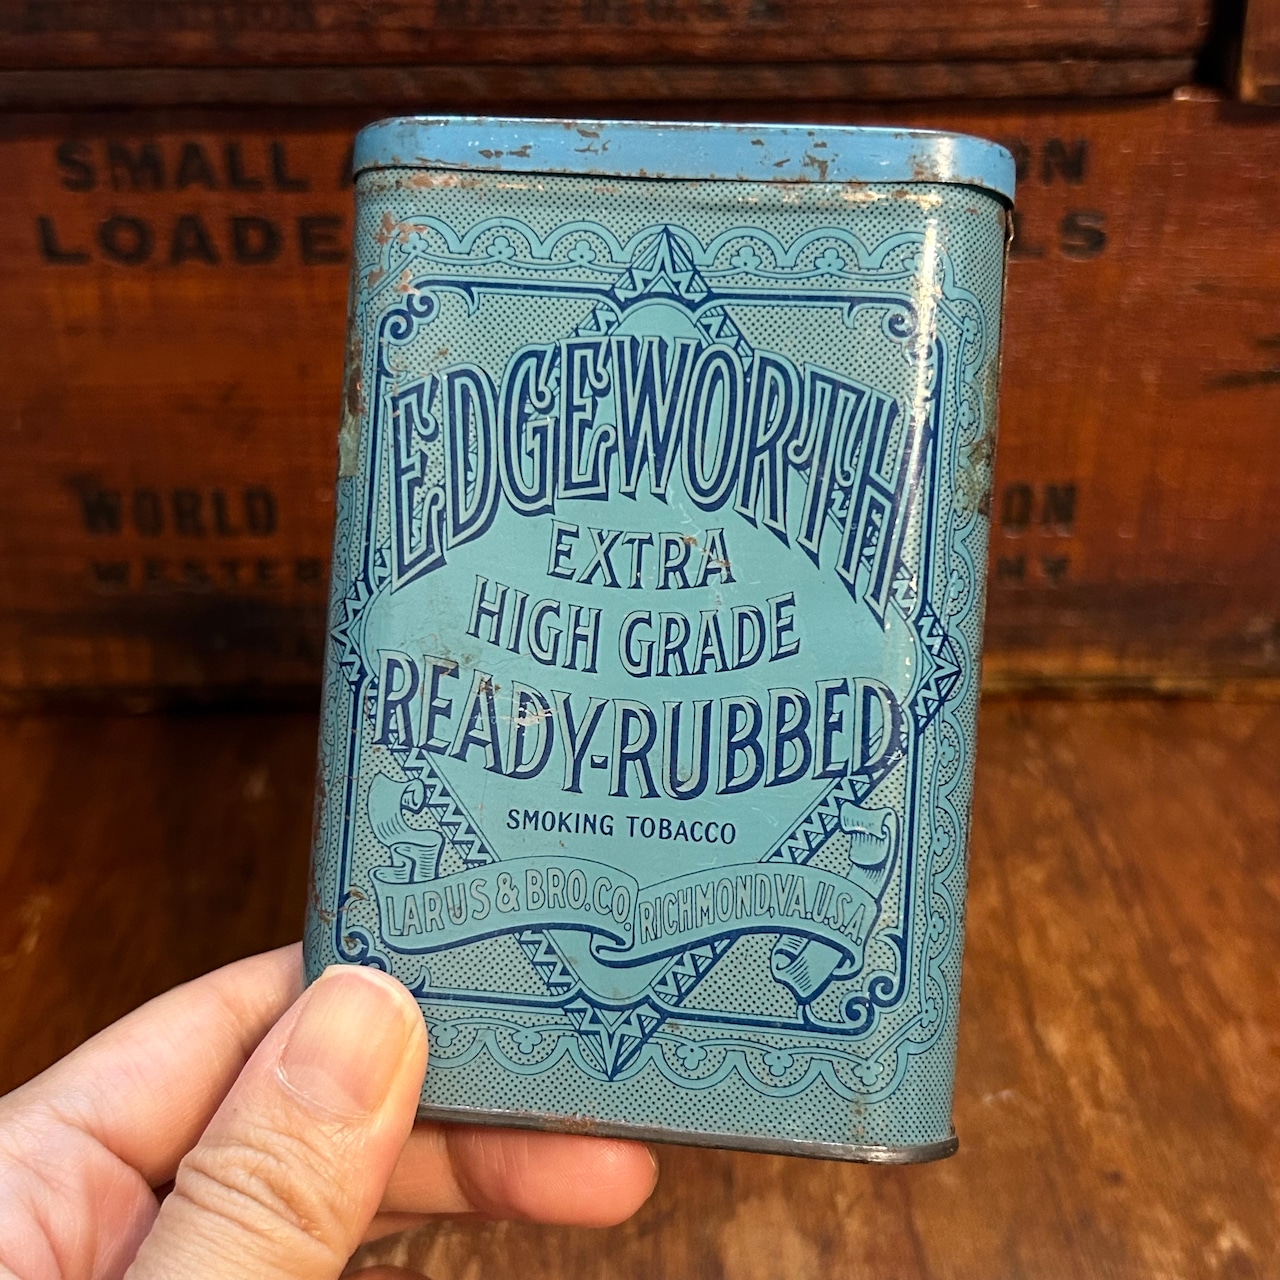 SMALL A
LOADE
ON
LS
WORLD
WESTER
ON
NY
EDGEWORTH
EXTRA
HIGH GRADE
READY-RUBBED
SMOKING TOBACCO
LARUS & BRO. CO. RICHMOND, VA. U.S.A.